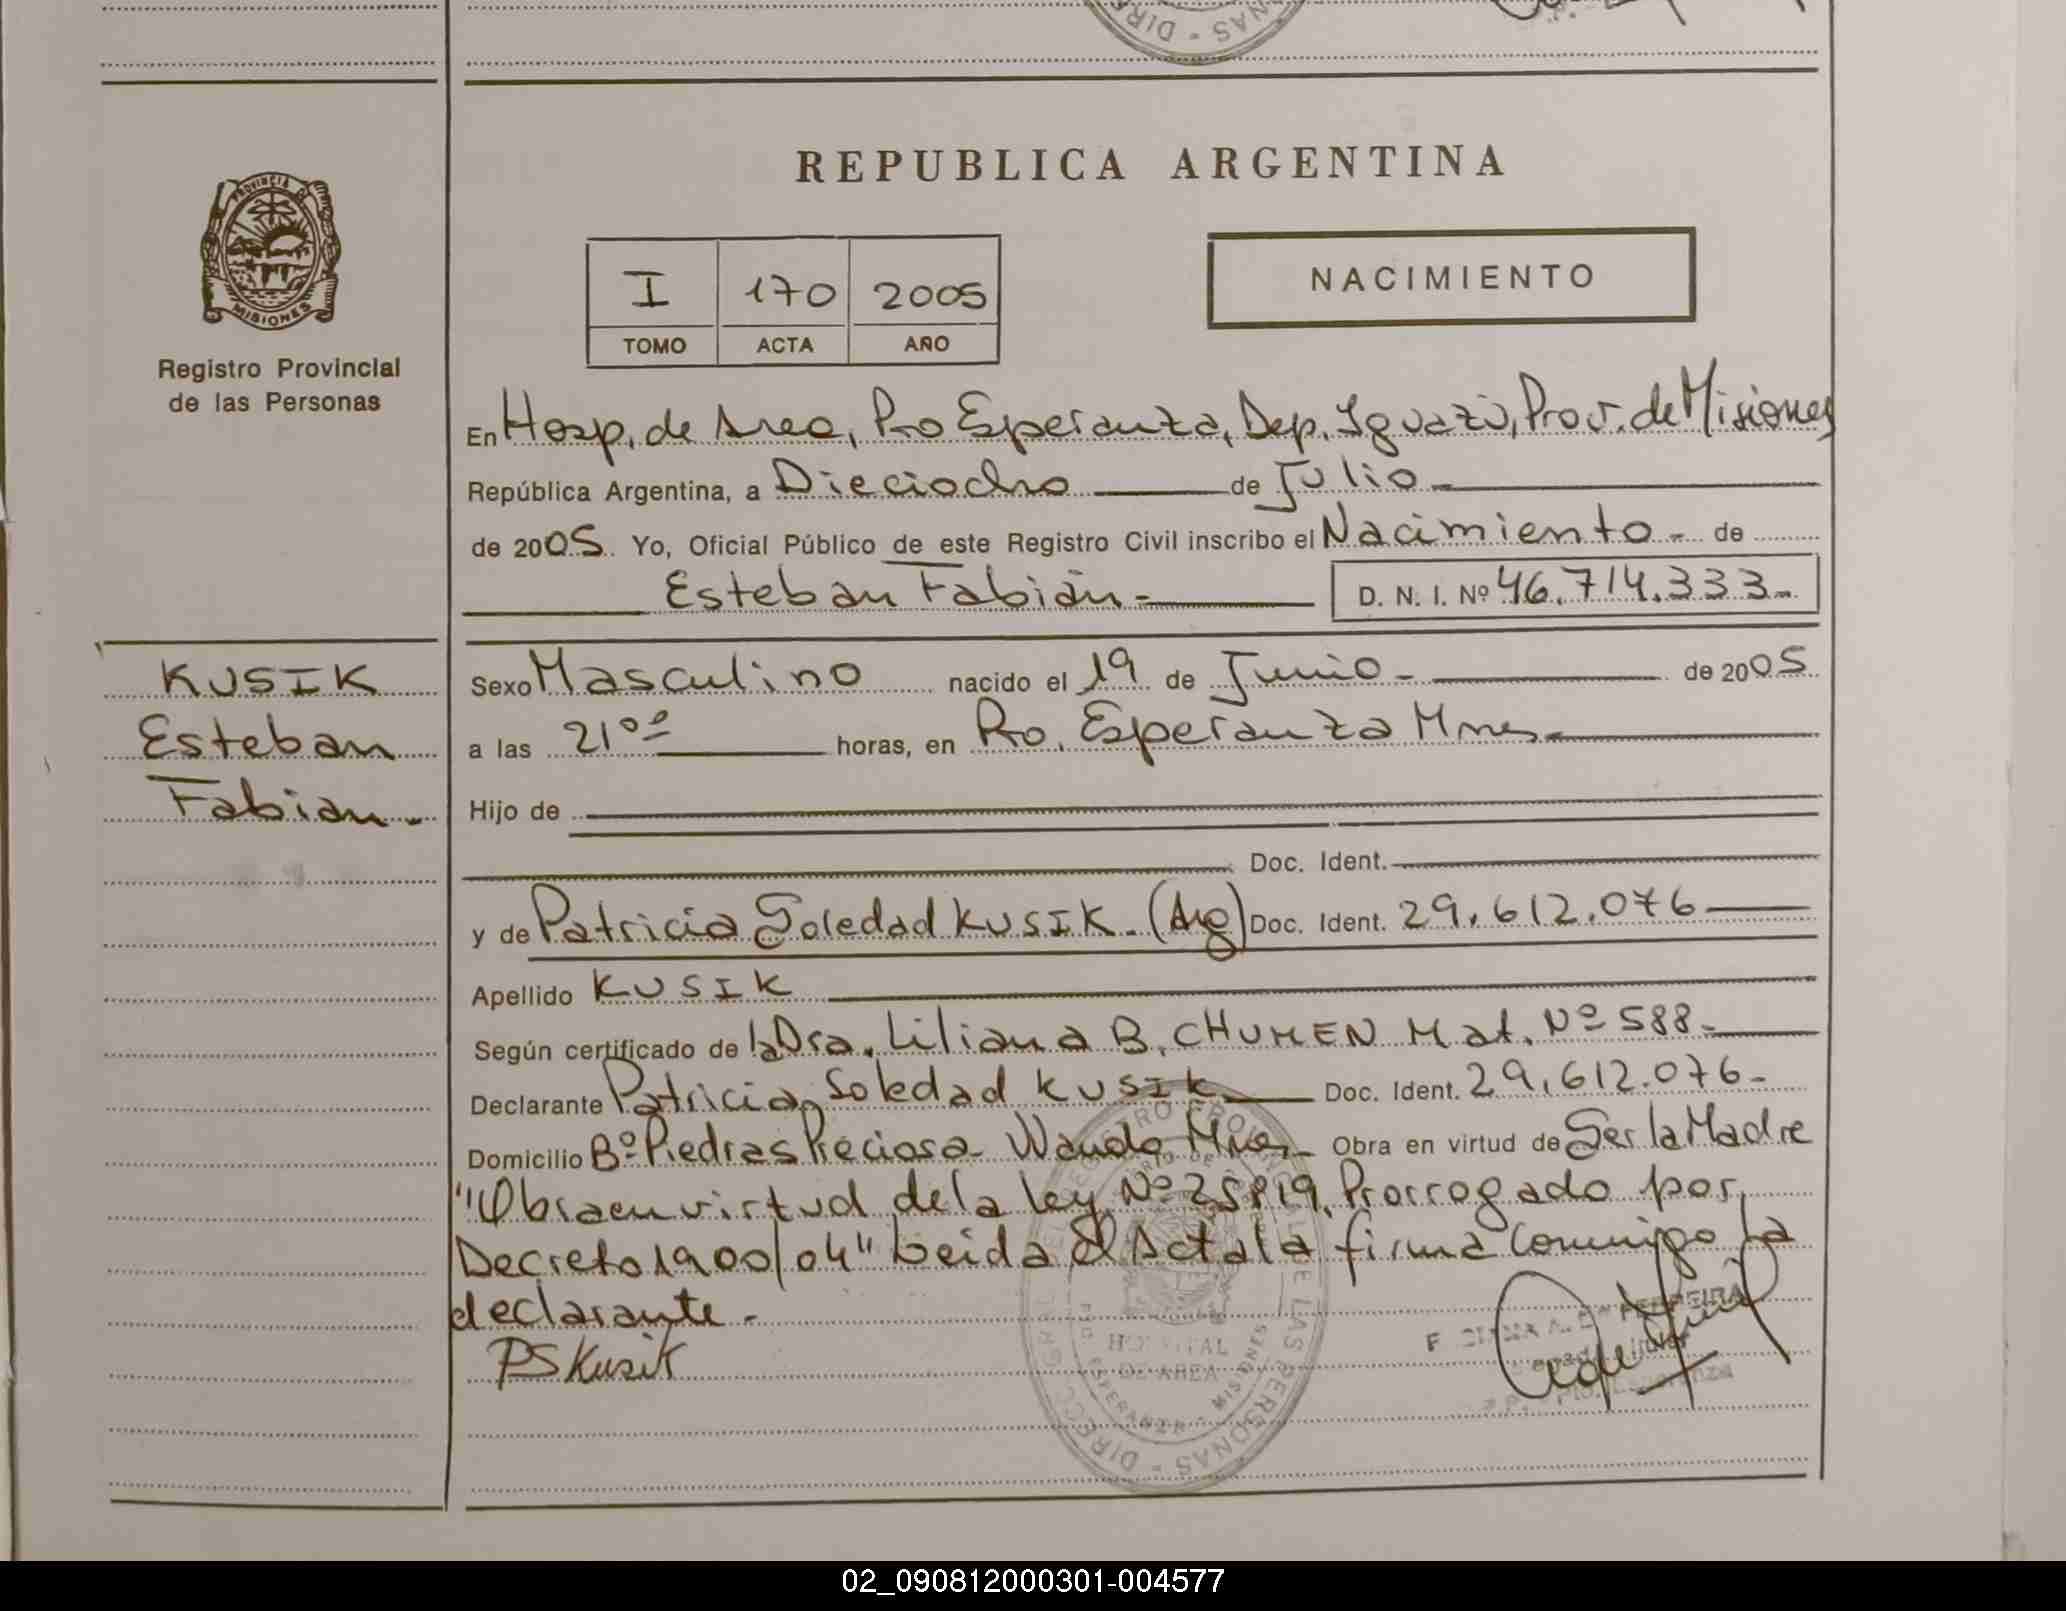 DIRECC
NAS
REPUBLICA ARGENTINA
PROVINCIA D
MISIONES
Registro Provincial
de las Personas
I 170 2005
TOMO ACTA AÑO
NACIMIENTO
En Hosp. de Area, Pto Esperanza, Dep. Iguazú, Prov. de Misiones
República Argentina, a Dieciocho de Julio
de 2005. Yo, Oficial Público de este Registro Civil inscribo el Nacimiento - de
Esteban Fabián - D. N. I. Nº 46.714.333-
KUSIK
Esteban
Fabian.-
Sexo Masculino nacido el 19 de Junio - de 2005
a las 21ºº horas, en Pto. Esperanza Mnes-
Hijo de
Doc. Ident.
y de Patricia Soledad KUSIK. (Arg) Doc. Ident. 29.612.076
Apellido KUSIK
Según certificado de la Dra. Liliana B. CHUMEN Mat. Nº 588-
Declarante Patricia Soledad KUSIK Doc. Ident. 29.612.076-
Domicilio Bº Piedras Preciosa Wanda Mnes- Obra en virtud de Ser la Madre
"Obra en virtud de la ley Nº 25819, Prorrogado por
Decreto 1900/04" Leida el Acta la firma Conmigo la
declarante.-
PSKusik
HOSPITAL
DE AREA
ESPERANZA - MISIONES
02_090812000301-004577